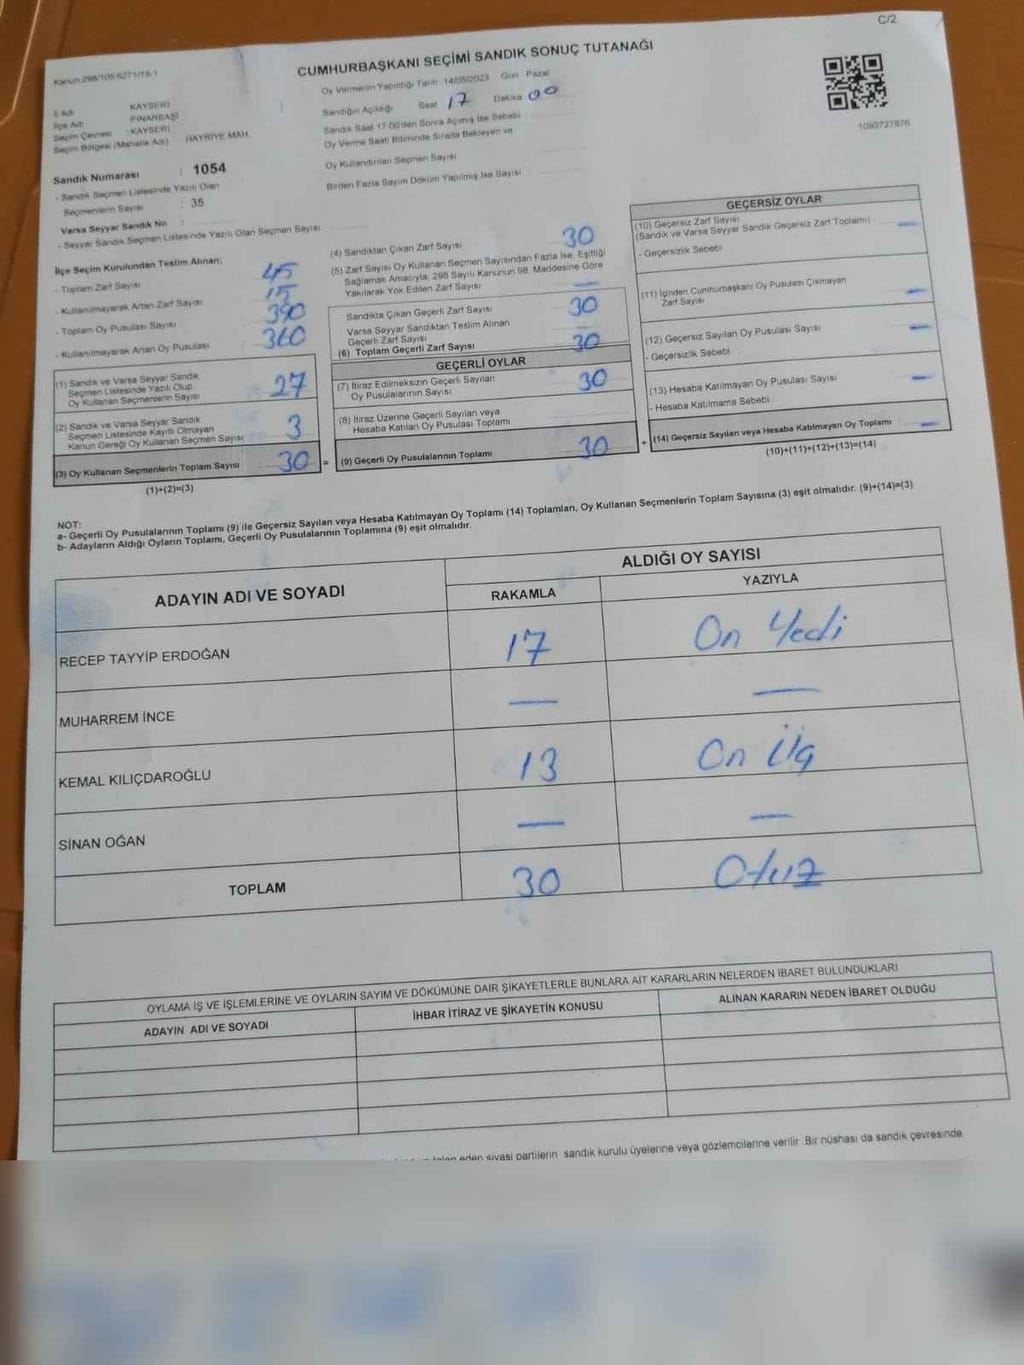 C/2
Kanun:298/105 6271/18/1
CUMHURBAŞKANI SEÇİMİ SANDIK SONUÇ TUTANAĞI
Oy Vermenin Yapıldığı Tarih 14/05/2023 Gün Pazar
Sandığın Açıldığı Saat 17 Dakika 00
Sandık Saat 17:00'den Sonra Açılmış İse Sebebi
Oy Verme Saati Bitiminde Sırada Bekleyen ve
Oy Kullandırılan Seçmen Sayısı
Birden Fazla Sayım Döküm Yapılmış İse Sayısı
1093727876
İl Adı KAYSERİ
İlçe Adı PINARBAŞI
Seçim Çevresi : KAYSERİ
Seçim Bölgesi (Mahalle Adı) HAYRİYE MAH.
Sandık Numarası : 1054
- Sandık Seçmen Listesinde Yazılı Olan
Seçmenlerin Sayısı : 35
Varsa Seyyar Sandık No :
- Seyyar Sandık Seçmen Listesinde Yazılı Olan Seçmen Sayısı
İlçe Seçim Kurulundan Teslim Alınan;
- Toplam Zarf Sayısı 45
- Kullanılmayarak Artan Zarf Sayısı 15
- Toplam Oy Pusulası Sayısı 390
- Kullanılmayarak Artan Oy Pusulası 360
(1) Sandık ve Varsa Seyyar Sandık
Seçmen Listesinde Yazılı Olup
Oy Kullanan Seçmenlerin Sayısı 27
(2) Sandık ve Varsa Seyyar Sandık
Seçmen Listesinde Kayıtlı Olmayan
Kanun Gereği Oy Kullanan Seçmen Sayısı 3
(3) Oy Kullanan Seçmenlerin Toplam Sayısı 30 =
(1)+(2)=(3)
(4) Sandıktan Çıkan Zarf Sayısı 30
(5) Zarf Sayısı Oy Kullanan Seçmen Sayısından Fazla İse, Eşitliği
Sağlamak Amacıyla, 298 Sayılı Kanunun 98. Maddesine Göre
Yakılarak Yok Edilen Zarf Sayısı —
Sandıkta Çıkan Geçerli Zarf Sayısı 30
Varsa Seyyar Sandıktan Teslim Alınan
Geçerli Zarf Sayısı
(6) Toplam Geçerli Zarf Sayısı 30
GEÇERLİ OYLAR
(7) İtiraz Edilmeksizin Geçerli Sayılan
Oy Pusulalarının Sayısı 30
(8) İtiraz Üzerine Geçerli Sayılan veya
Hesaba Katılan Oy Pusulası Toplamı
(9) Geçerli Oy Pusulalarının Toplamı 30 +
GEÇERSİZ OYLAR
(10) Geçersiz Zarf Sayısı
(Sandık ve Varsa Seyyar Sandık Geçersiz Zarf Toplamı) —
- Geçersizlik Sebebi
(11) İçinden Cumhurbaşkanı Oy Pusulası Çıkmayan
Zarf Sayısı —
(12) Geçersiz Sayılan Oy Pusulası Sayısı —
- Geçersizlik Sebebi
(13) Hesaba Katılmayan Oy Pusulası Sayısı —
- Hesaba Katılmama Sebebi
(14) Geçersiz Sayılan veya Hesaba Katılmayan Oy Toplamı —
(10)+(11)+(12)+(13)=(14)
NOT:
a- Geçerli Oy Pusulalarının Toplamı (9) ile Geçersiz Sayılan veya Hesaba Katılmayan Oy Toplamı (14) Toplamları, Oy Kullanan Seçmenlerin Toplam Sayısına (3) eşit olmalıdır. (9)+(14)=(3)
b- Adayların Aldığı Oyların Toplamı, Geçerli Oy Pusulalarının Toplamına (9) eşit olmalıdır.
ADAYIN ADI VE SOYADI
ALDIĞI OY SAYISI
RAKAMLA YAZIYLA
RECEP TAYYİP ERDOĞAN 17 On Yedi
MUHARREM İNCE — —
KEMAL KILIÇDAROĞLU 13 On Üç
SİNAN OĞAN — —
TOPLAM 30 Otuz
OYLAMA İŞ VE İŞLEMLERİNE VE OYLARIN SAYIM VE DÖKÜMÜNE DAİR ŞİKAYETLERLE BUNLARA AİT KARARLARIN NELERDEN İBARET BULUNDUKLARI
ADAYIN ADI VE SOYADI İHBAR İTİRAZ VE ŞİKAYETİN KONUSU ALINAN KARARIN NEDEN İBARET OLDUĞU
eden siyasi partilerin sandık kurulu üyelerine veya gözlemcilerine verilir. Bir nüshası da sandık çevresinde